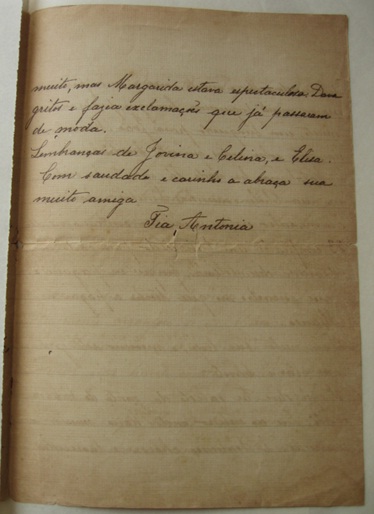 muito, mas Margarida estava espectaculosa. Dava
gritos e fazia exclamações que já passaram
de moda.
Lembranças de Jovina e Celina, e Elisa.
Com saudade e carinho a abraça sua
muito amiga
Tia Antonia